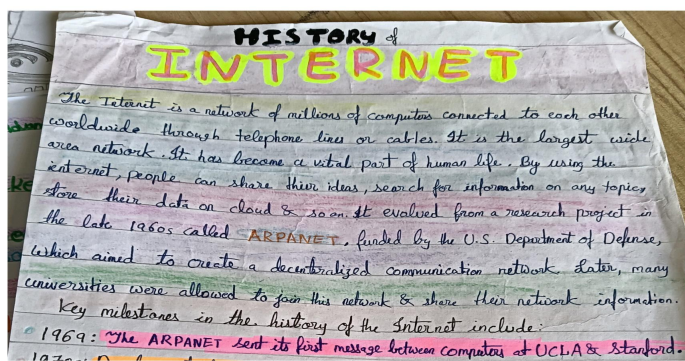 HISTORY of
INTERNET
The Iternit is a network of millions of computers connected to each other
worldwide through telephone lines or cables. It is the largest wide
area network. It has become a vital part of human life. By using the
internet, people can share their ideas, search for information on any topics,
store their data on cloud & so on. It evolved from a research project in
the late 1960s called ARPANET, funded by the U.S. Department of Defense,
which aimed to create a decentralized communication network. Later, many
universities were allowed to join this network & share their network information.
Key milestones in the history of the Internet include:
1969: The ARPANET sent its first message between computers at UCLA & Stanford.